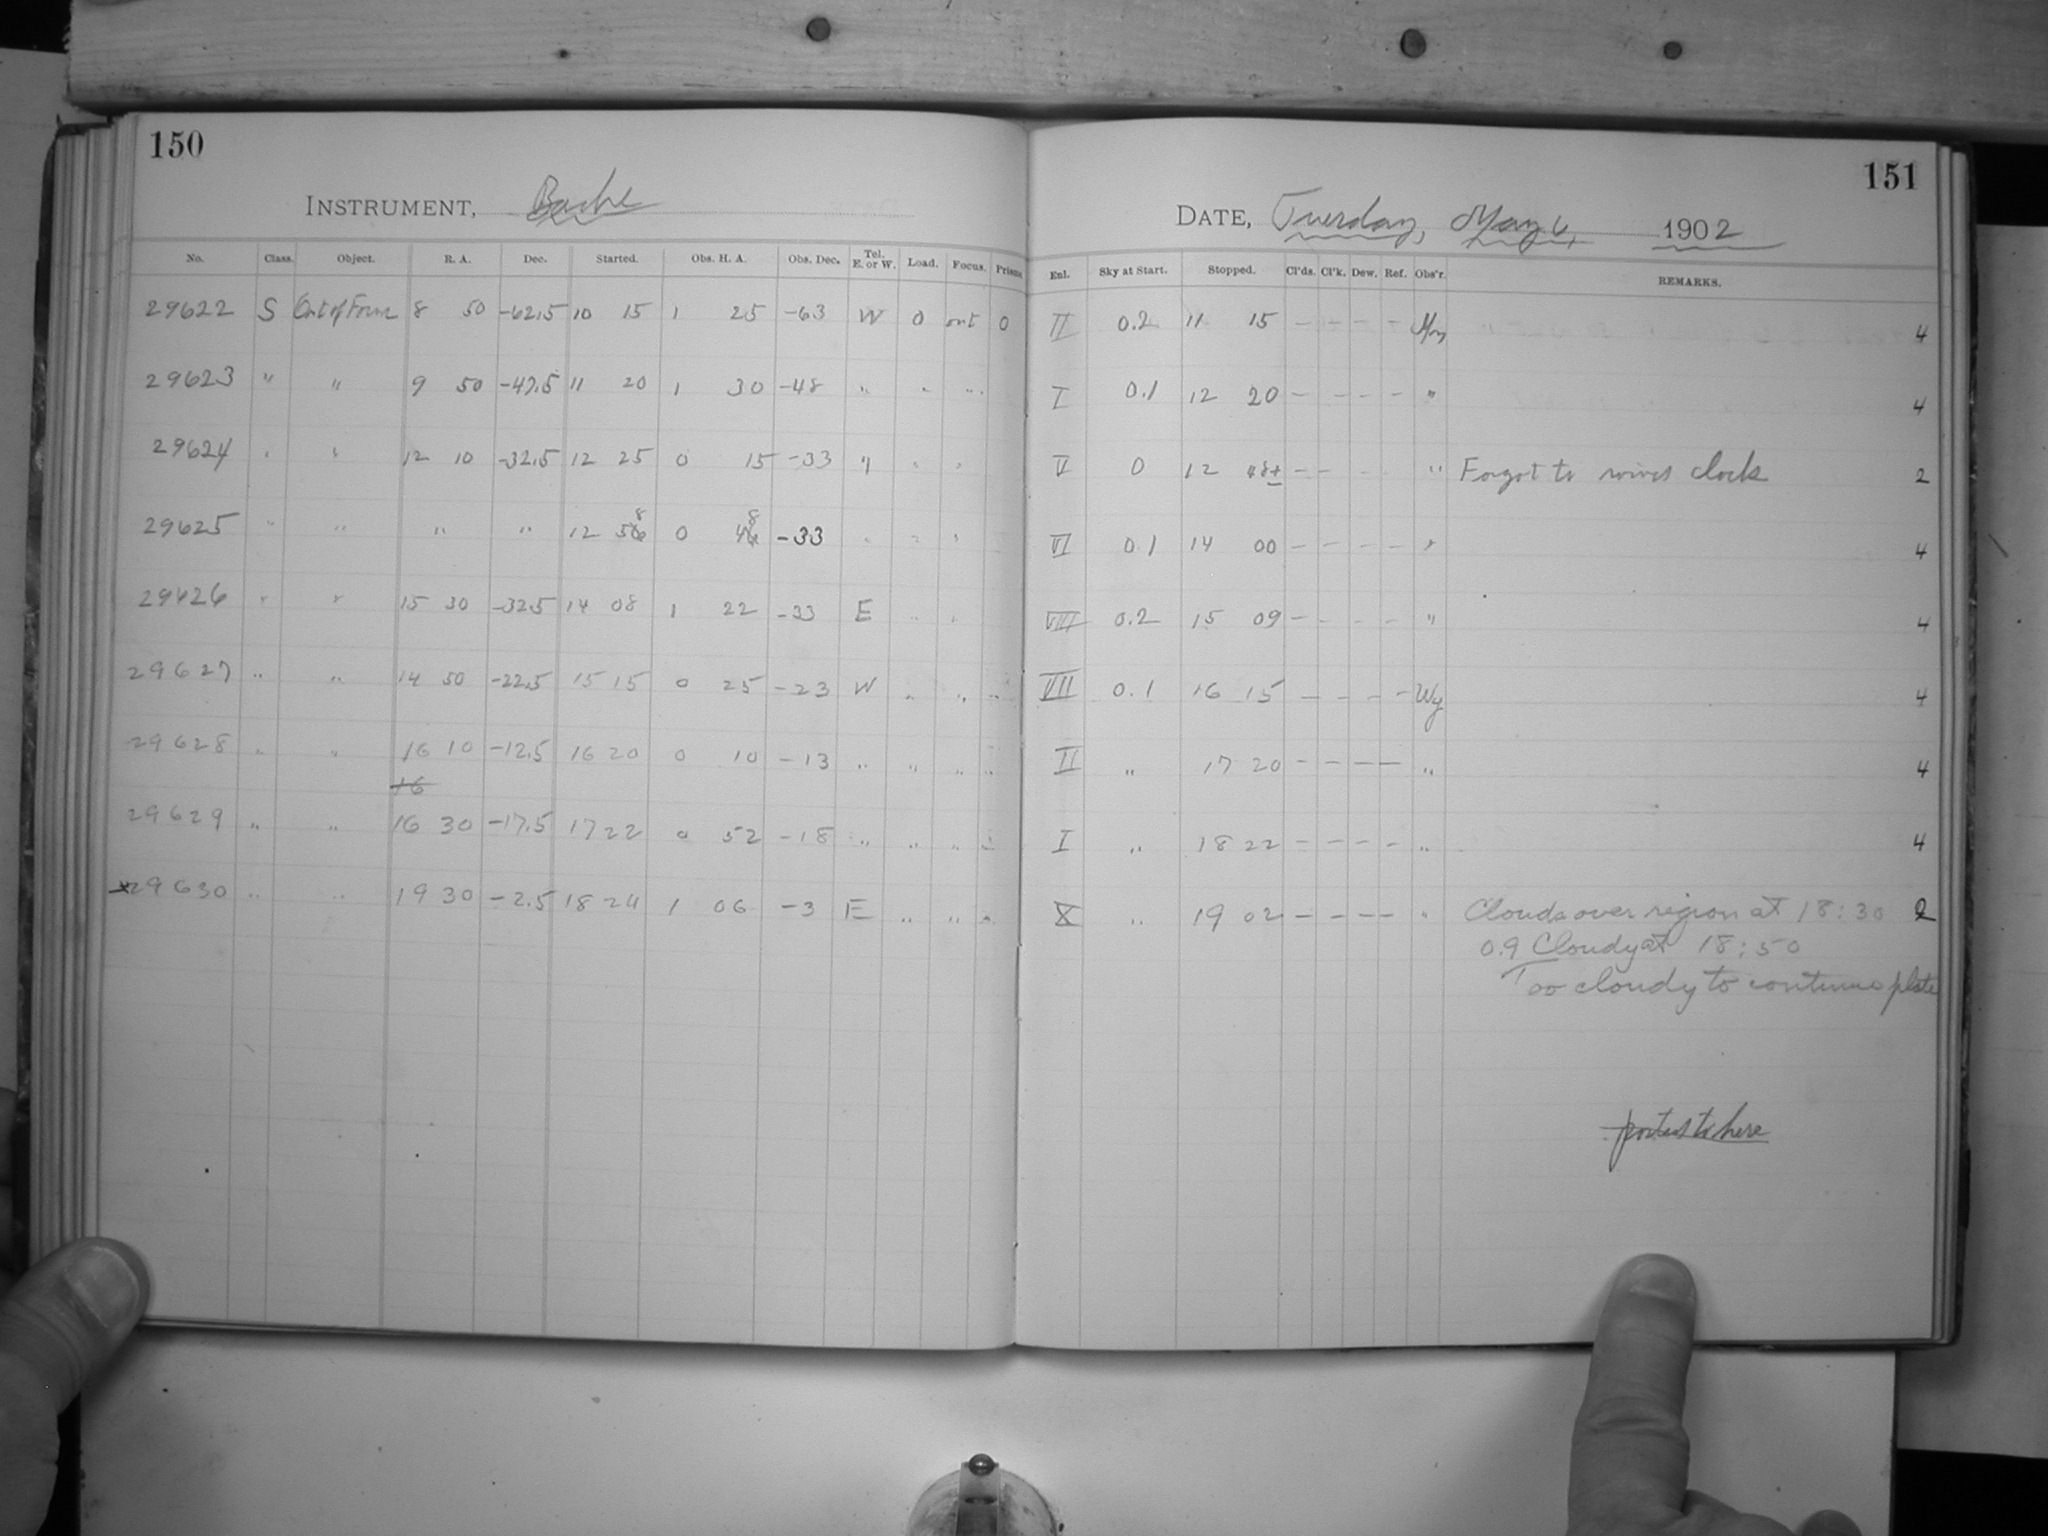 150
INSTRUMENT, Bache
No. Class. Object. R. A. Dec. Started. Obs. H. A. Obs. Dec. Tel. E. or W. Load. Focus. Prisms
29622 S Out of Focus 8 50 -62.5 10 15 1 25 -63 W 0 out 0
29623 " " 9 50 -47.5 11 20 1 30 -48 " " "
29624 " " 12 10 -32.5 12 25 0 15 -33 " " "
29625 " " " " 12 58 0 48 -33 " " "
29626 " " 15 30 -32.5 14 08 1 22 -33 E " "
29627 " " 14 50 -22.5 15 15 0 25 -23 W " " "
29628 " " 16 10 -12.5 16 20 0 10 -13 " " " "
16
29629 " " 16 30 -17.5 17 22 0 52 -18 " " " "
29630 " " 19 30 -2.5 18 24 1 06 -3 E " " "
151
DATE, Tuesday, May 6, 1902
Enl. Sky at Start. Stopped. Cl'ds. Cl'k. Dew. Ref. Obs'r. REMARKS.
II 0.2 11 15 - - - - 4
I 0.1 12 20 - - - - " 4
V 0 12 48± - - " Forgot to wind clock 2
VI 0.1 14 00 - - - - " 4
VIII 0.2 15 09 - - - - " 4
VII 0.1 16 15 - - - - Wy 4
II " 17 20 - - - - " 4
I " 18 22 - - - - " 4
X " 19 02 - - - - " Clouds over region at 18:30 2
0.9 Cloudy at 18:50
Too cloudy to continue plate
to here